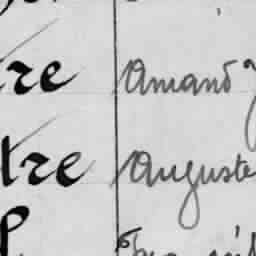 re Amand
tre Auguste